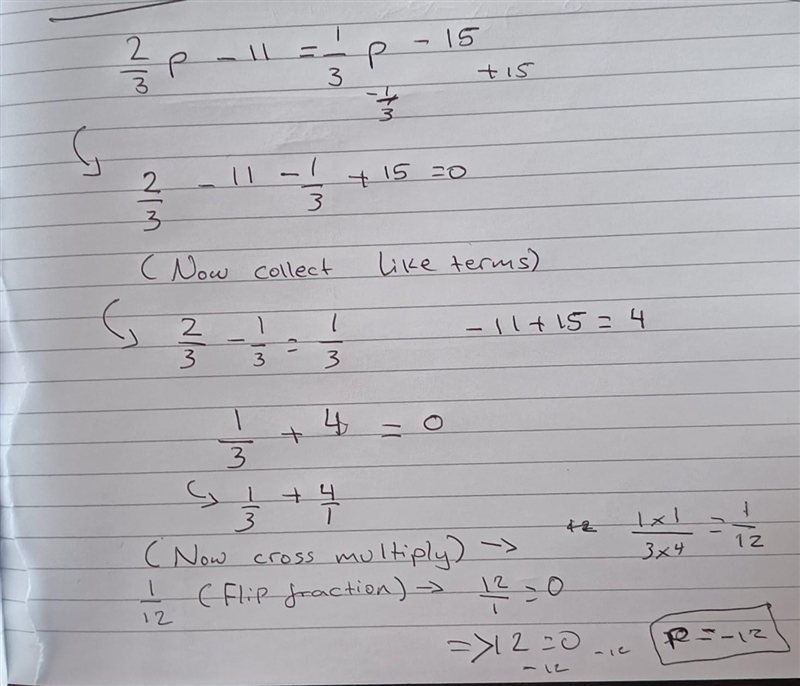 2/3 p - 11 = 1/3 p - 15
- 1/3 + 15
2/3 - 11 - 1/3 + 15 = 0
(Now collect like terms)
2/3 - 1/3 = 1/3 - 11 + 15 = 4
1/3 + 4 = 0
1/3 + 4/1
(Now cross multiply) → 1x1/3x4 = 1/12
1/12 (Flip fraction) → 12/1 = 0
=> 12 = 0
-12 -12
p = -12